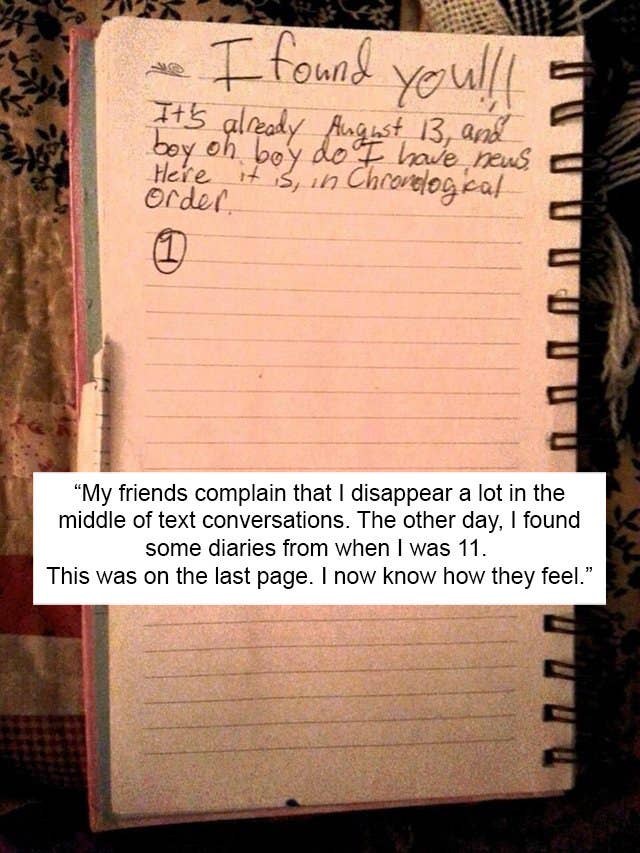 I found you!!!
It's already August 13, and
boy oh boy do I have news.
Here it is, in Chronological
Order.
1
“My friends complain that I disappear a lot in the
middle of text conversations. The other day, I found
some diaries from when I was 11.
This was on the last page. I now know how they feel.”